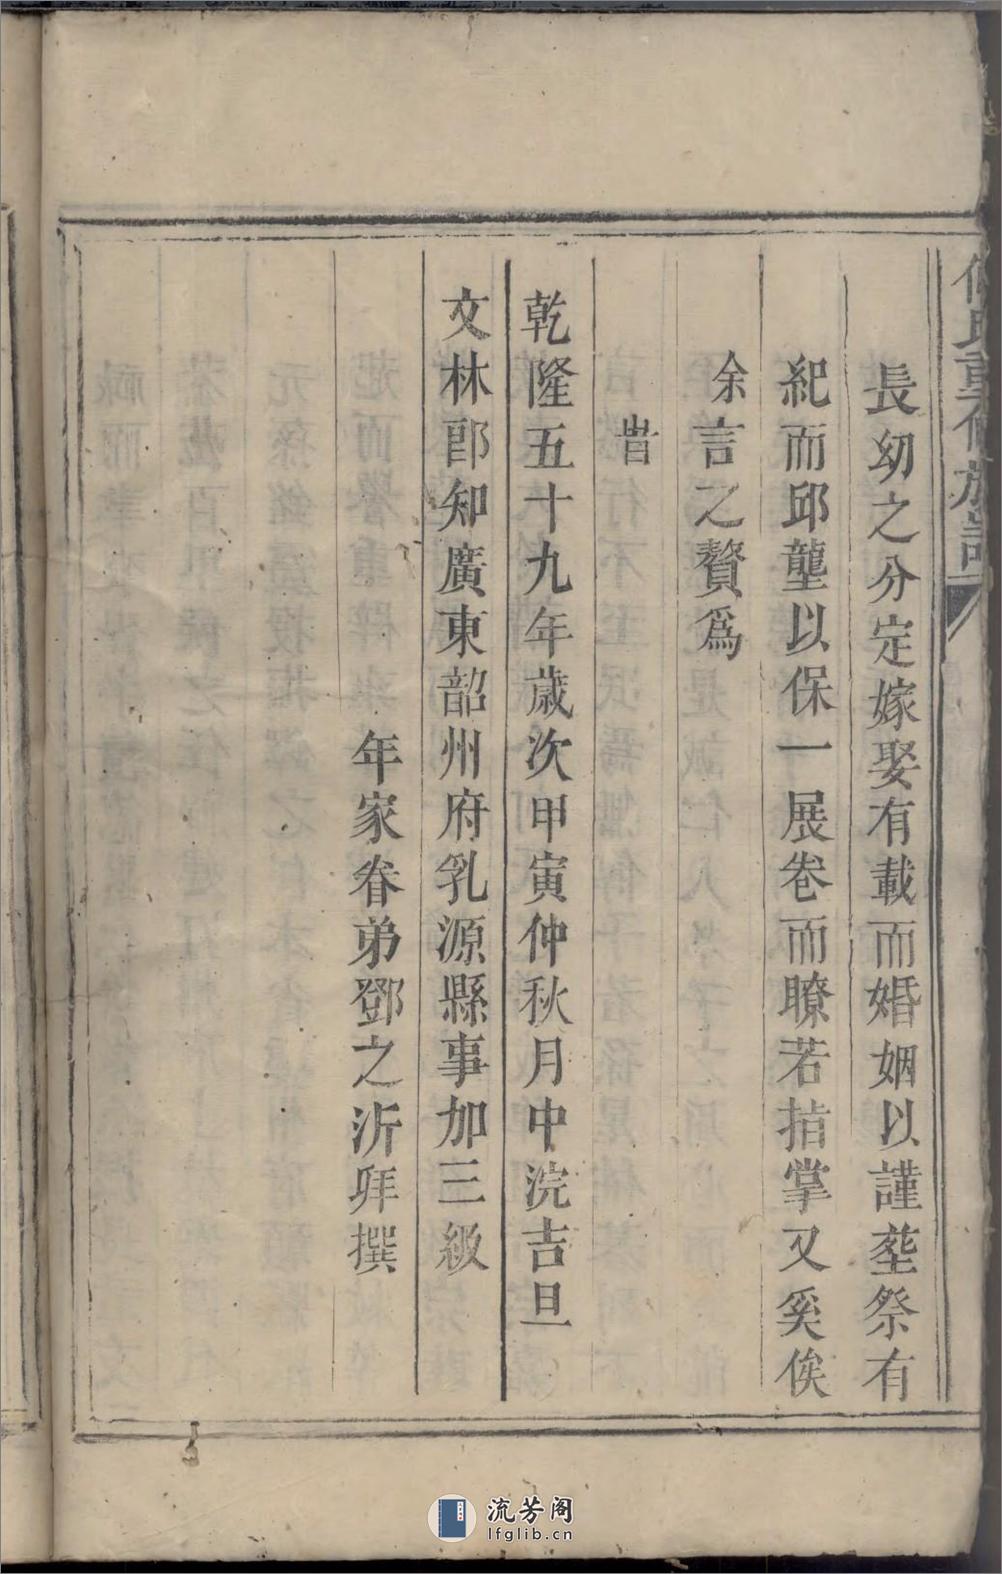 氏重修族譜
長幼之分定嫁娶有載而婚姻以謹塟祭有
紀而邱壟以保一展卷而瞭若指掌又奚俟
余言之贅爲
旹
乾隆五十九年歲次甲寅仲秋月中浣吉旦
文林郎知廣東韶州府乳源縣事加三級
年家眷弟鄧之沂拜撰
流芳阁
lfglib.cn